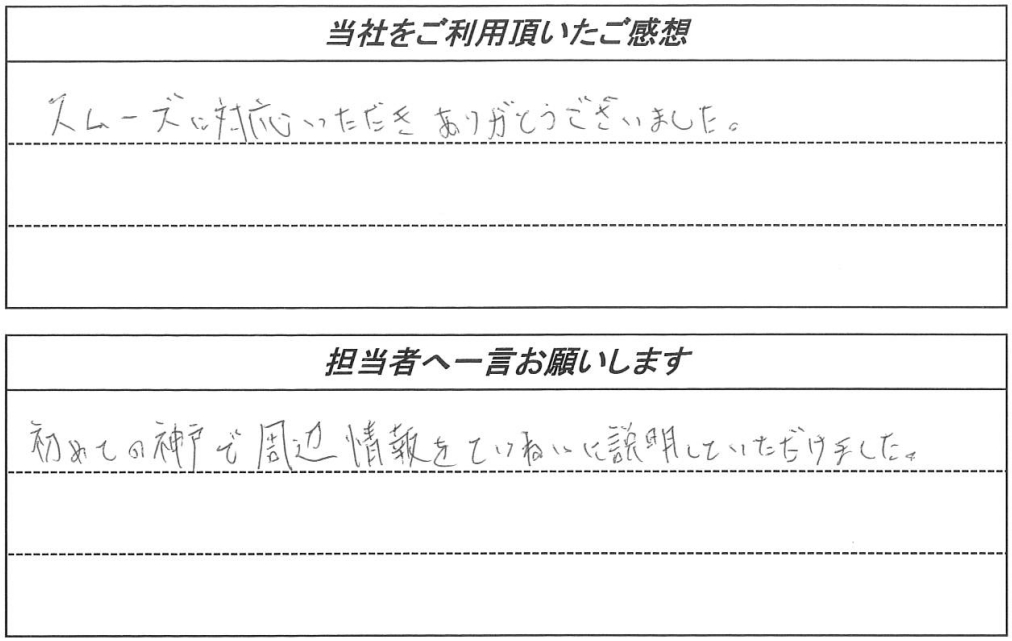 当社をご利用頂いたご感想
スムーズに対応いただきありがとうございました。
担当者へ一言お願いします
初めての神戸で周辺情報をていねいに説明していただけました。